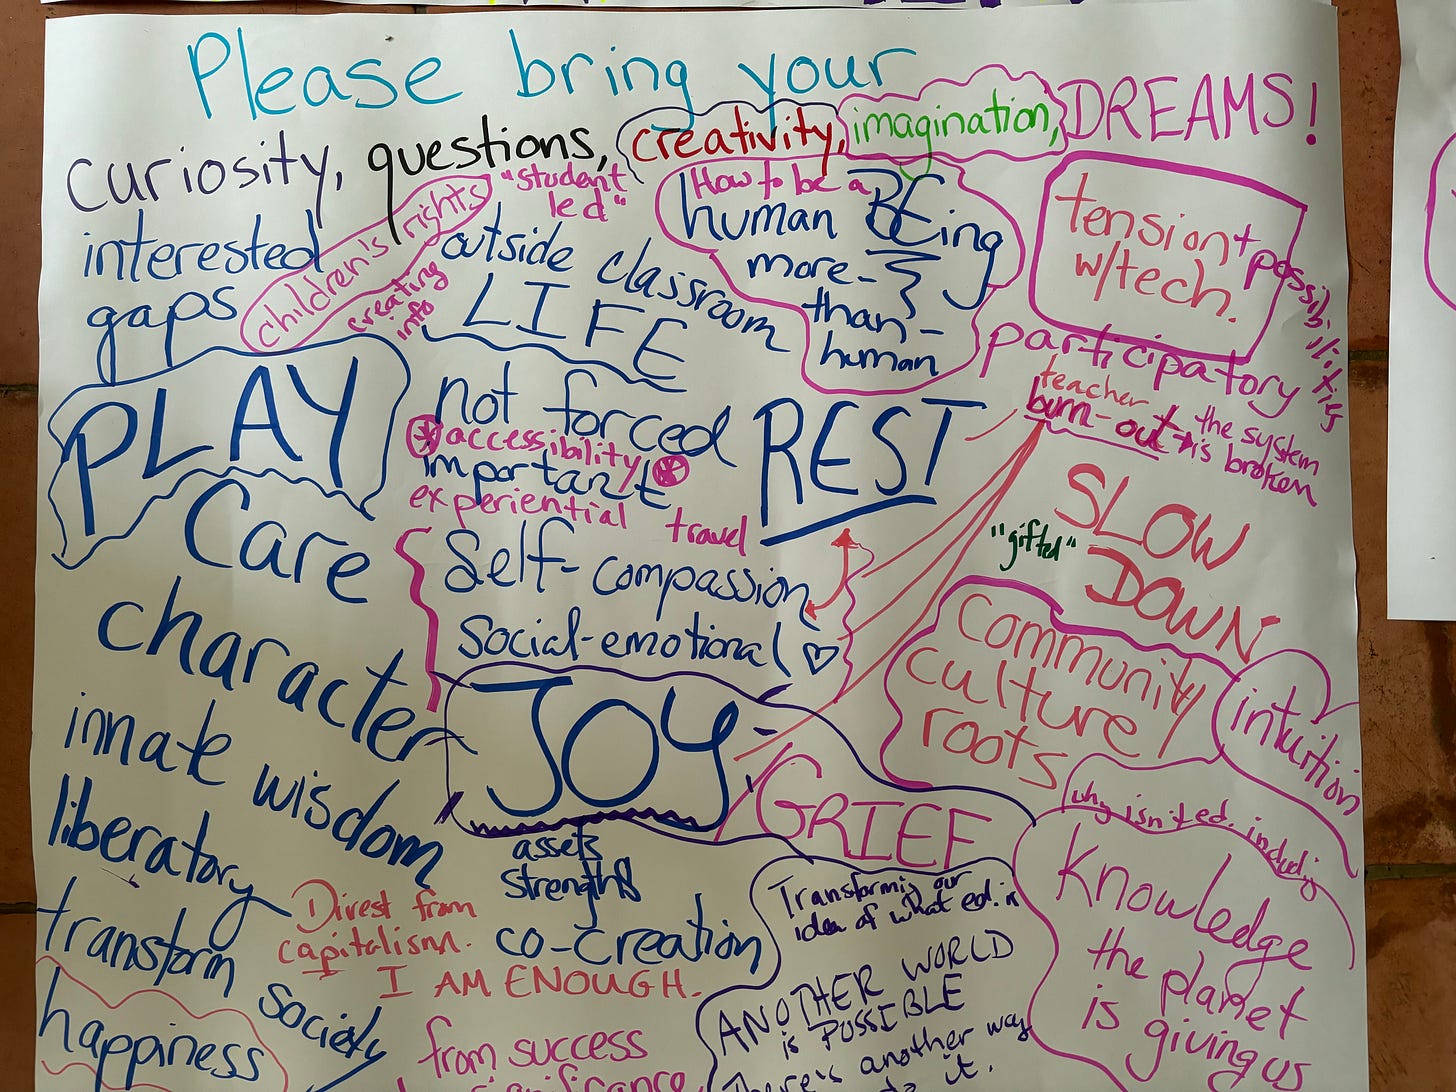 Please bring your
curiosity, questions, creativity, imagination, DREAMS!
interested
gaps
children's rights
"student
led"
creating
info
outside classroom
LIFE
How to be a
human BEing
more-
than-
human
tension +
w/tech.
possibilities
participatory
teacher
burn-out → the system
is broken
PLAY
not forced
accessibility
important
experiential
travel
REST
SLOW
DOWN
"gifted"
Care
Self-compassion
Social-emotional
character
JOY
Community
culture
roots
intuition
innate wisdom
GRIEF
why isn't ed. including
Knowledge
the planet
is giving us
liberatory
assets
strengths
Transforming our
idea of what ed. is
transform society
Divest from
capitalism.
I AM ENOUGH.
co-creation
ANOTHER WORLD
is POSSIBLE
There's another way
it.
happiness
from success
significance